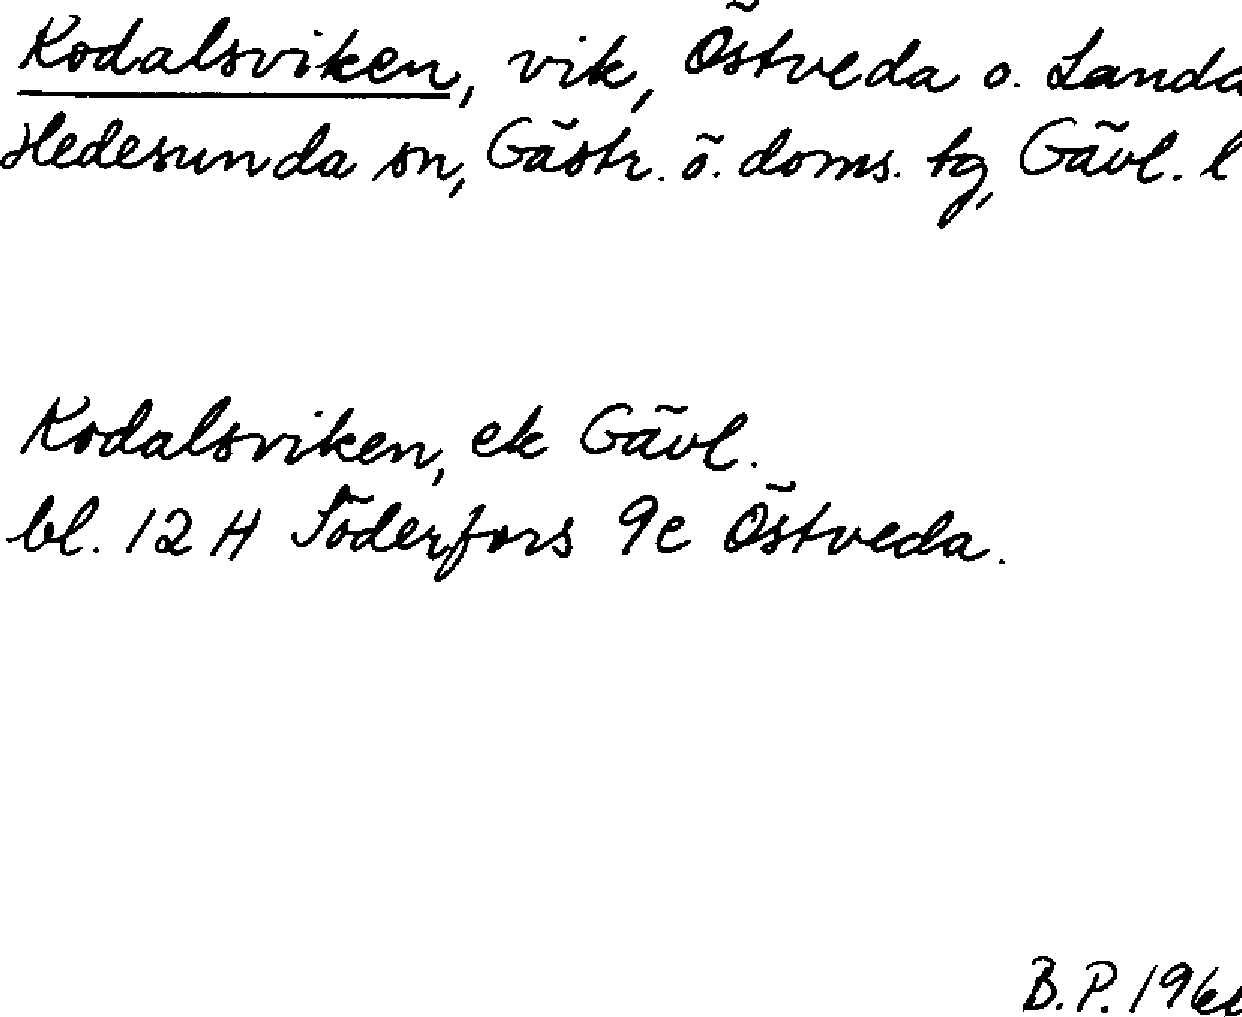 Kodalsviken, vik, Östveda o. Landa
Hedesunda sn, Gästr. ö. doms. tg, Gävl. l
Kodalsviken, ek Gävl.
bl. 12 H Söderfors 9e Östveda.
B. P. 196